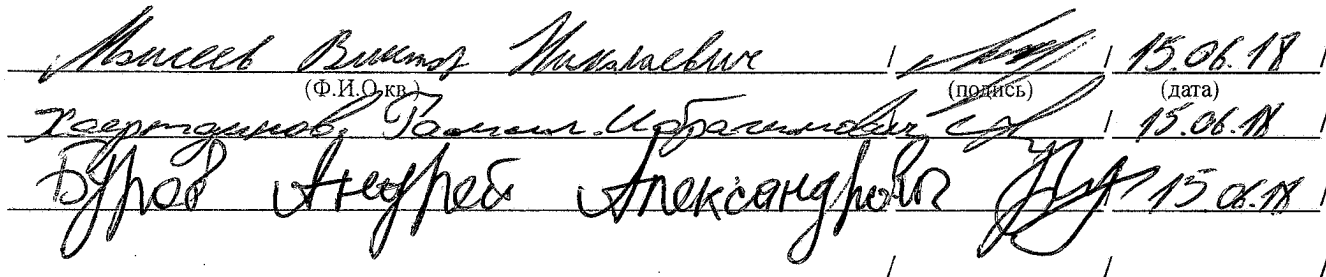 Моисеев Виктор Николаевич / / 15.06.18 /
(Ф.И.О,кв.) (подпись) (дата)
Ибрагимович, / / 15.06.18 /
Буров Андрей Александрович / 15.06.18 /
/ / /